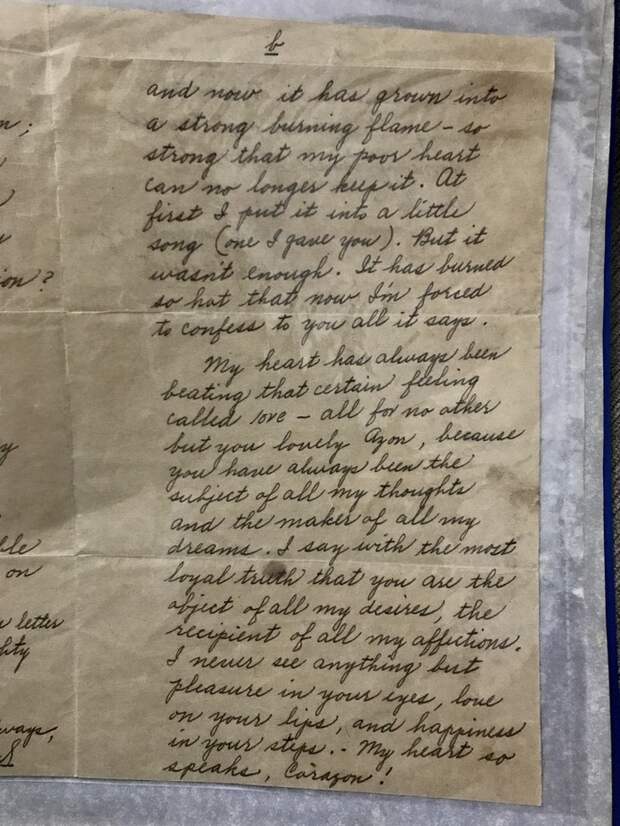 b
and now it has grown into
a strong burning flame – so
strong that my poor heart
can no longer keep it. At
first I put it into a little
song (one I gave you). But it
wasn't enough. It has burned
so hot that now I'm forced
to confess to you all it says.
My heart has always been
beating that certain feeling
called love – all for no other
but you lovely Azon, because
you have always been the
subject of all my thoughts
and the maker of all my
dreams. I say with the most
loyal truth that you are the
object of all my desires, the
recipient of all my affections.
I never see anything but
pleasure in your eyes, love
on your lips, and happiness
in your steps. - My heart so
speaks, Corazon!
n;
ion?
y
ble
on
letter
ways,
S